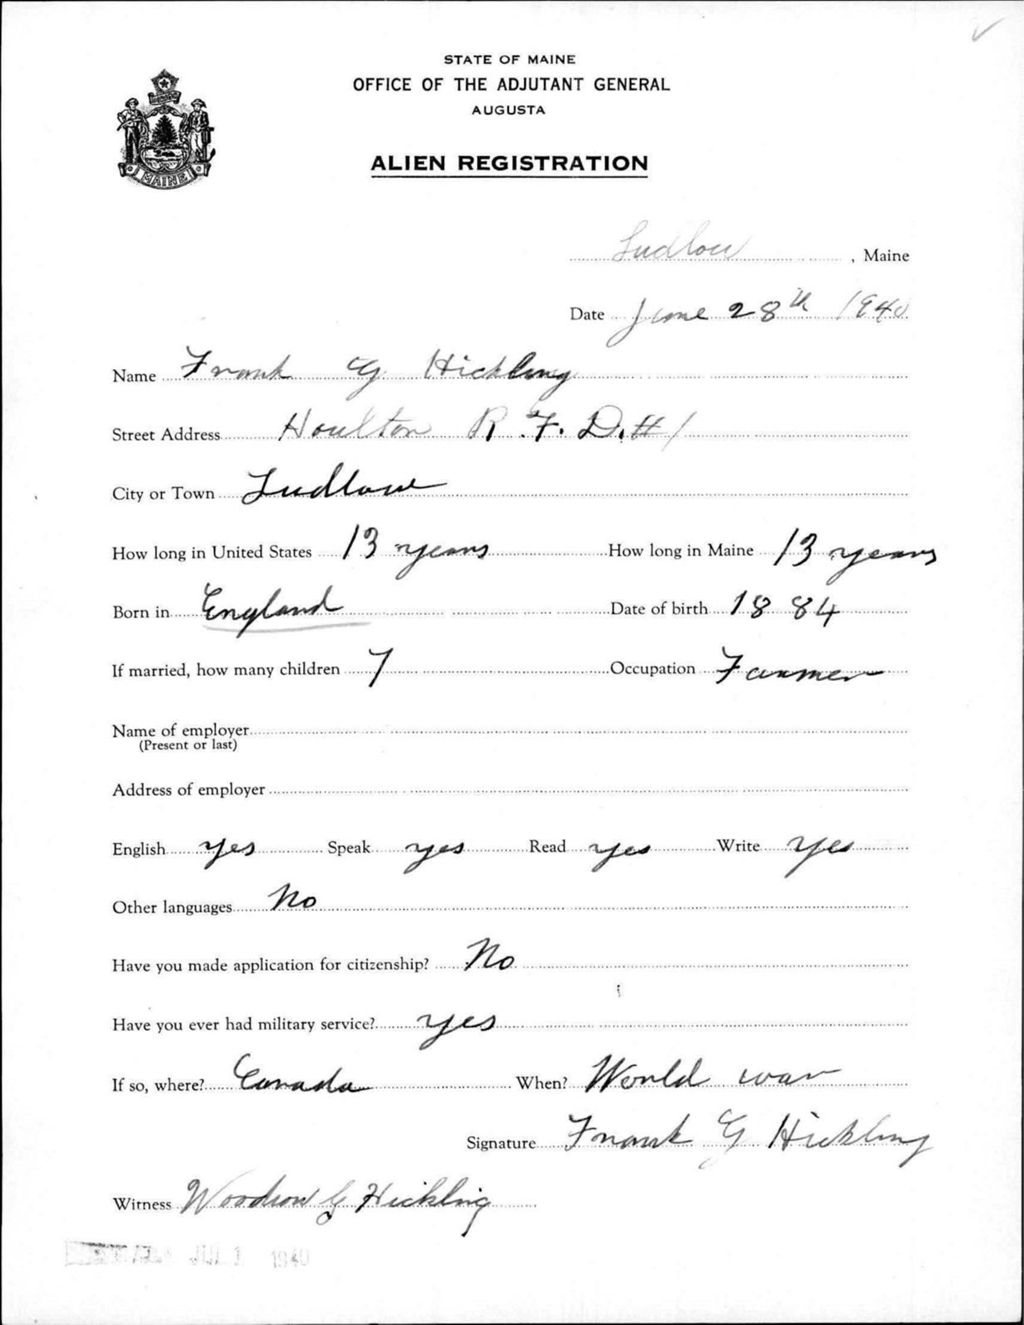 STATE OF MAINE
OFFICE OF THE ADJUTANT GENERAL
AUGUSTA
ALIEN REGISTRATION
MAINE
Ludlow, Maine
Date June 28th 1940
Name Frank G Hickling
Street Address Houlton R.F.D.#1
City or Town Ludlow
How long in United States 13 years How long in Maine 13 years
Born in England Date of birth 1884
If married, how many children 7 Occupation Farmer
Name of employer
(Present or last)
Address of employer
English yes Speak yes Read yes Write yes
Other languages No
Have you made application for citizenship? No
Have you ever had military service? yes
If so, where? Canada When? World war
Signature Frank G Hickling
Witness Woodrow G Hickling
JUL 1 1940